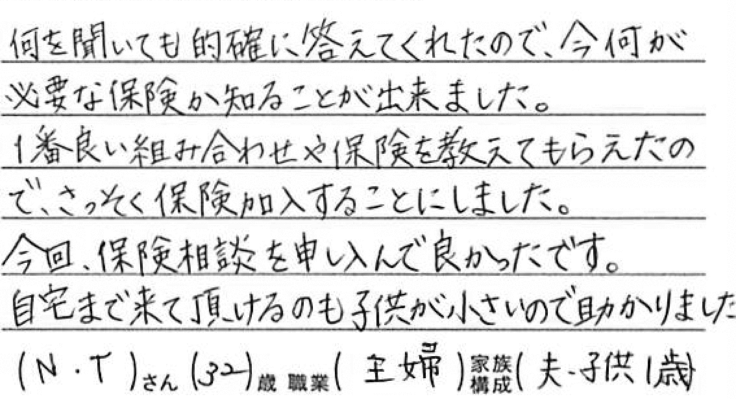 何を聞いても的確に答えてくれたので、今何が
必要な保険か知ることが出来ました。
1番良い組み合わせや保険を教えてもらえたの
で、さっそく保険加入することにしました。
今回、保険相談を申し込んで良かったです。
自宅まで来て頂けるのも子供が小さいので助かりました
(N.T)さん(32)歳 職業(主婦)家族構成(夫・子供1歳)